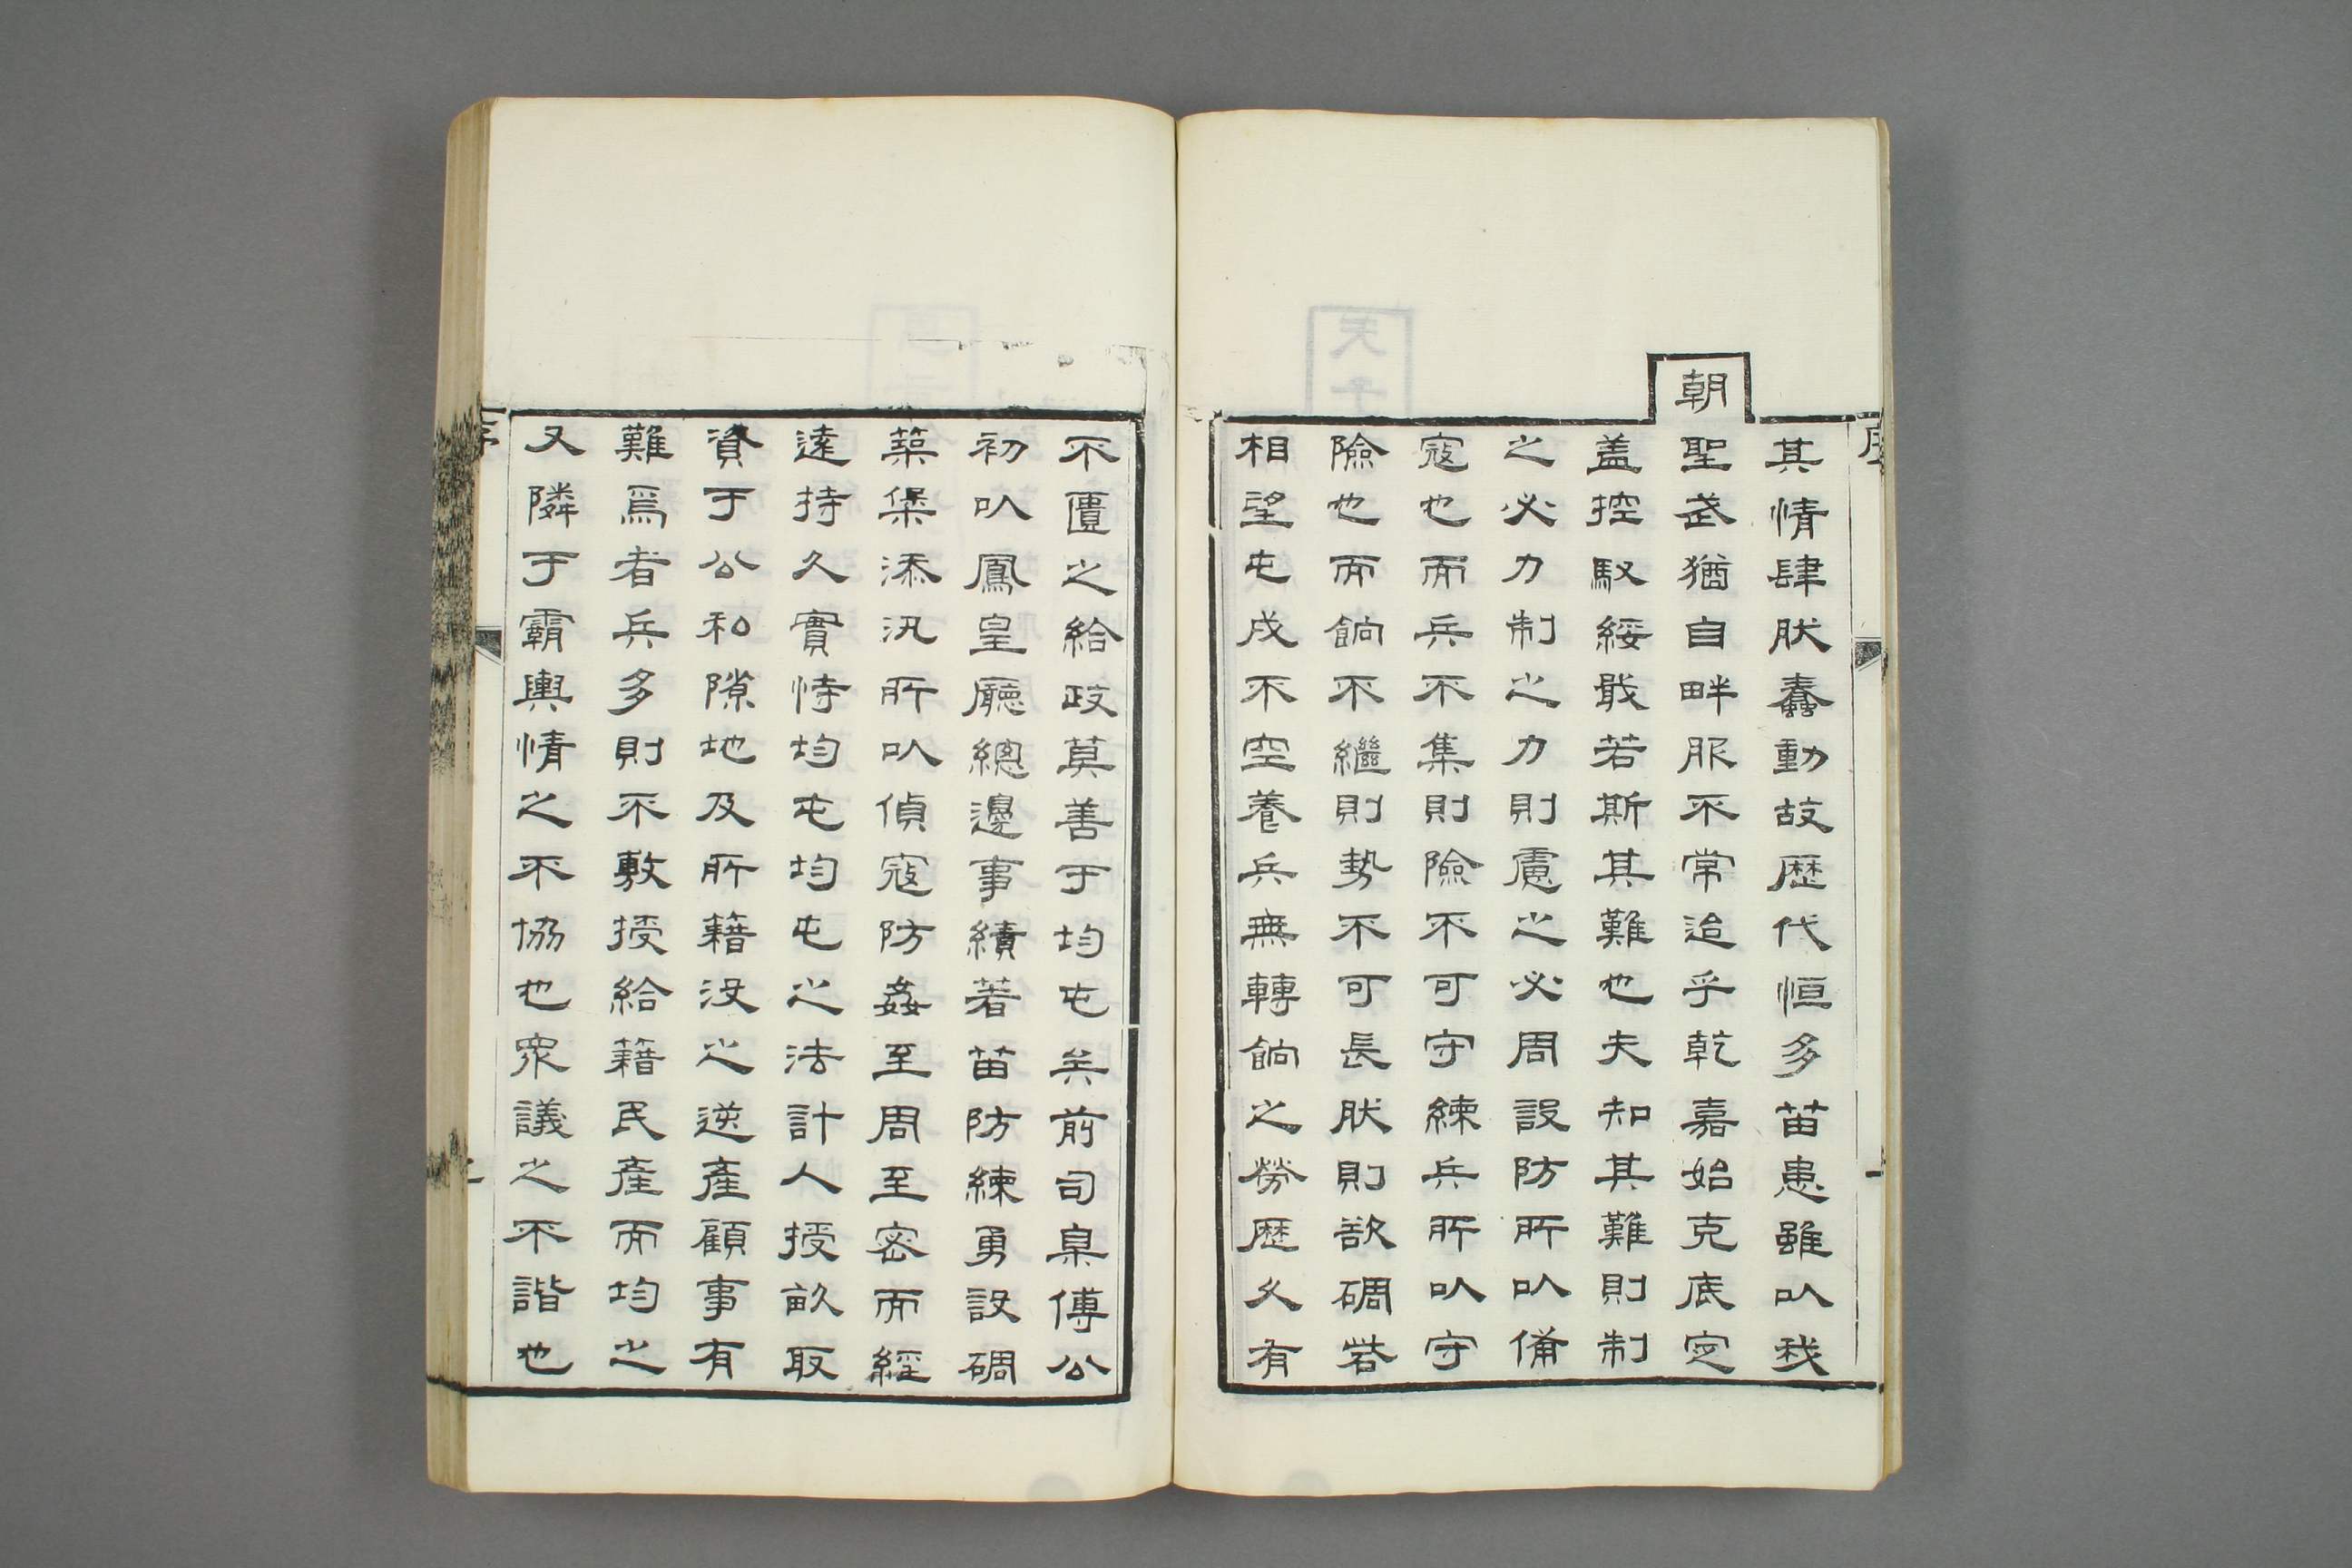 其情肆狀蠢動故歷代恒多苗患雖以我
朝聖武猶自畔服不常迨乎乾嘉始克底定
盖控馭綏戢若斯其難也夫知其難則制
之必力制之力則慮之必周設防所以備
寇也而兵不集則險不可守練兵所以守
險也而餉不繼則勢不可長狀則欲碉砦
相望屯戍不空養兵無轉餉之勞歷久有
不匱之給政莫善于均屯矣前司臬傅公
初以鳳皇廳總邊事績著苗防練勇設碉
築堡添汛所以偵寇防姦至周至密而經
遠持久實恃均屯均屯之法計人授畝取
資于公和隙地及所籍没之逆產顧事有
難爲者兵多則不敷授給籍民產而均之
又隣于霸輿情之不協也眾議之不諧也
序